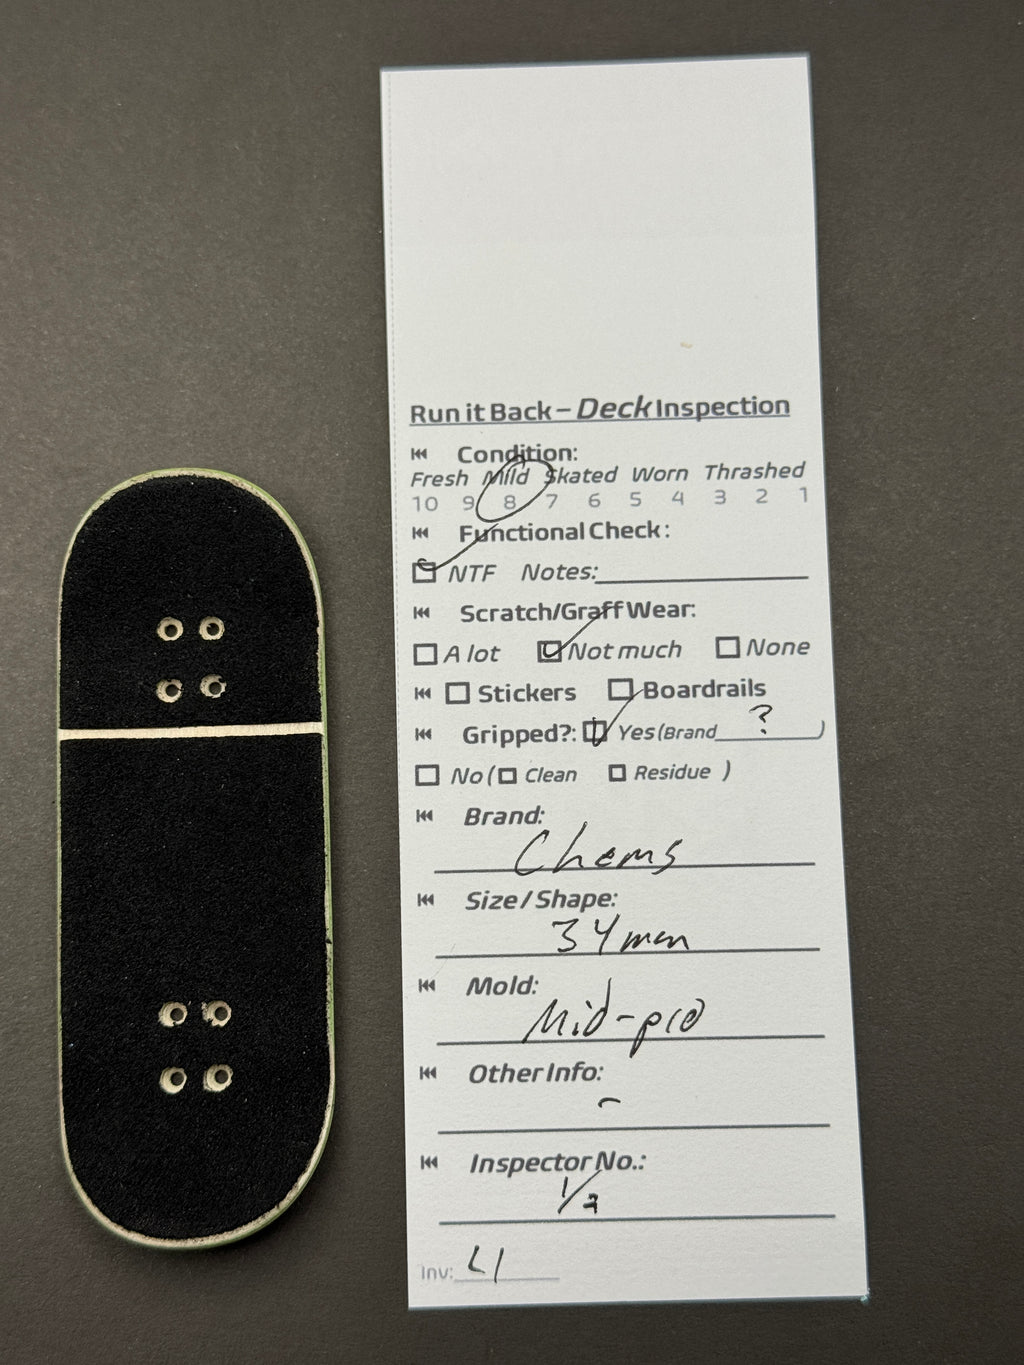 Run it Back – Deck Inspection
Condition:
Fresh Mild Skated Worn Thrashed
10 9 8 7 6 5 4 3 2 1
Functional Check:
NTF Notes:
Scratch/Graff Wear:
A lot Not much None
Stickers Boardrails
Gripped?: Yes (Brand ? )
No ( Clean Residue )
Brand:
Chems
Size / Shape:
34mm
Mold:
Mid-pro
Other Info:
-
Inspector No.:
Inv: L1